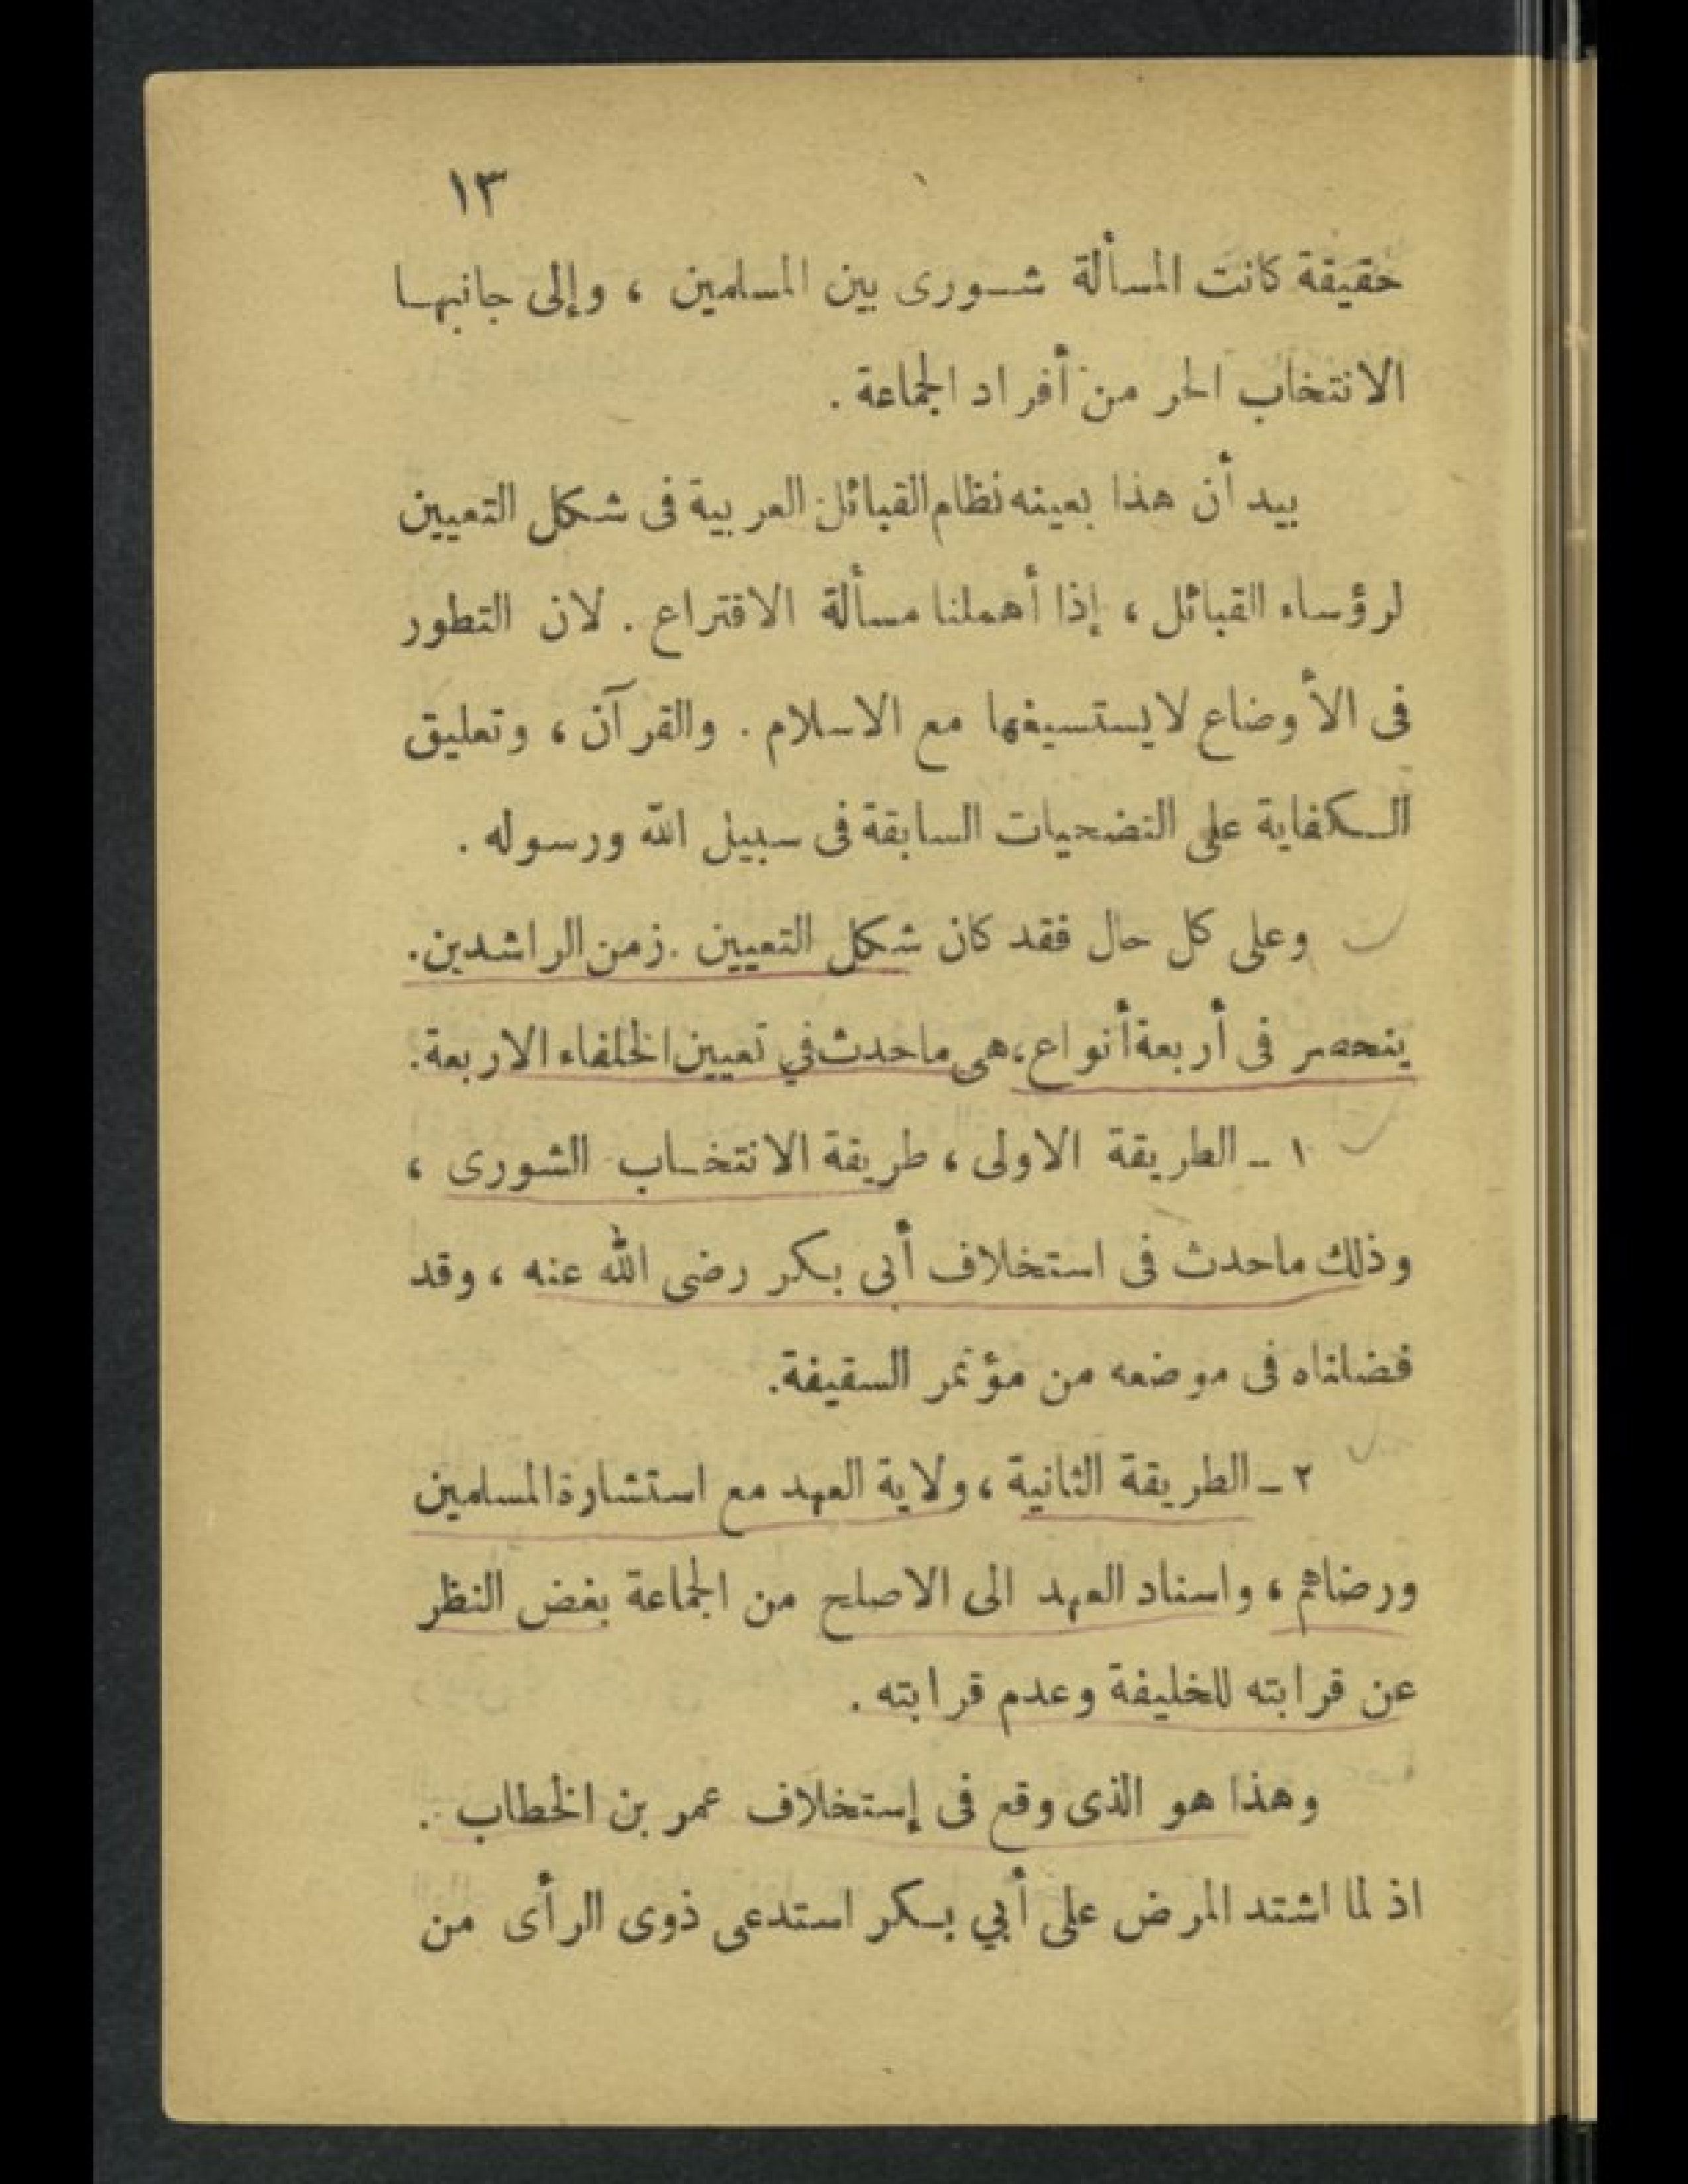 ١٣
حقيقة كانت المسألة شورى بين المسلمين ، وإلى جانبها
الانتخاب الحر من أفراد الجماعة .
بيد أن هذا بعينه نظام القبائل العربية فى شكل التعيين
لرؤساء القبائل ، إذا أهملنا مسألة الاقتراع . لان التطور
فى الأوضاع لا يستسيغها مع الاسلام . والقرآن ، وتعليق
الكفاية على التضحيات السابقة فى سبيل الله ورسوله .
وعلى كل حال فقد كان شكل التعيين . زمن الراشدين .
ينحصر فى أربعة أنواع ، هى ماحدث في تعيين الخلفاء الاربعة .
١ - الطريقة الاولى ، طريقة الانتخاب الشورى ،
وذلك ماحدث فى استخلاف أبى بكر رضى الله عنه ، وقد
فضلناه فى موضعه من مؤتمر السقيفة .
٢ - الطريقة الثانية ، ولاية العهد مع استشارة المسلمين
ورضائهم ، واسناد العهد الى الاصلح من الجماعة بغض النظر
عن قرابته للخليفة وعدم قرابته .
وهذا هو الذى وقع فى إستخلاف عمر بن الخطاب .
اذ لما اشتد المرض على أبي بكر استدعى ذوى الرأى من